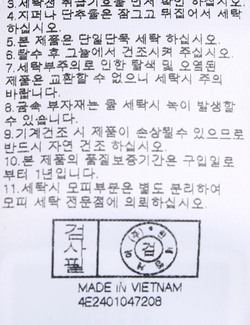 3.세탁전 취급기호를 먼저 확인 하십시오.
4.지퍼나 단추들은 잠그고 뒤집어서 세탁
하십시오.
5.본 제품은 단일단독 세탁 하십시오.
6.탈수 후 그늘에서 건조시켜 주십시오.
7.세탁부주의로 인한 탈색 및 오염된
제품은 교환할 수 없으니 세탁시 주의
바랍니다.
8.금속 부자재는 물 세탁시 녹이 발생할
수 있습니다.
9.기계건조 시 제품이 손상될수 있으므로
반드시 자연 건조 하십시오.
10.본 제품의 품질보증기간은 구입일로
부터 1년입니다.
11.세탁시 모피부분은 별도 분리하여
모피 세탁 전문점에 의뢰하십시오.
검
사필
(주)
검
MADE IN VIETNAM
4E2401047208